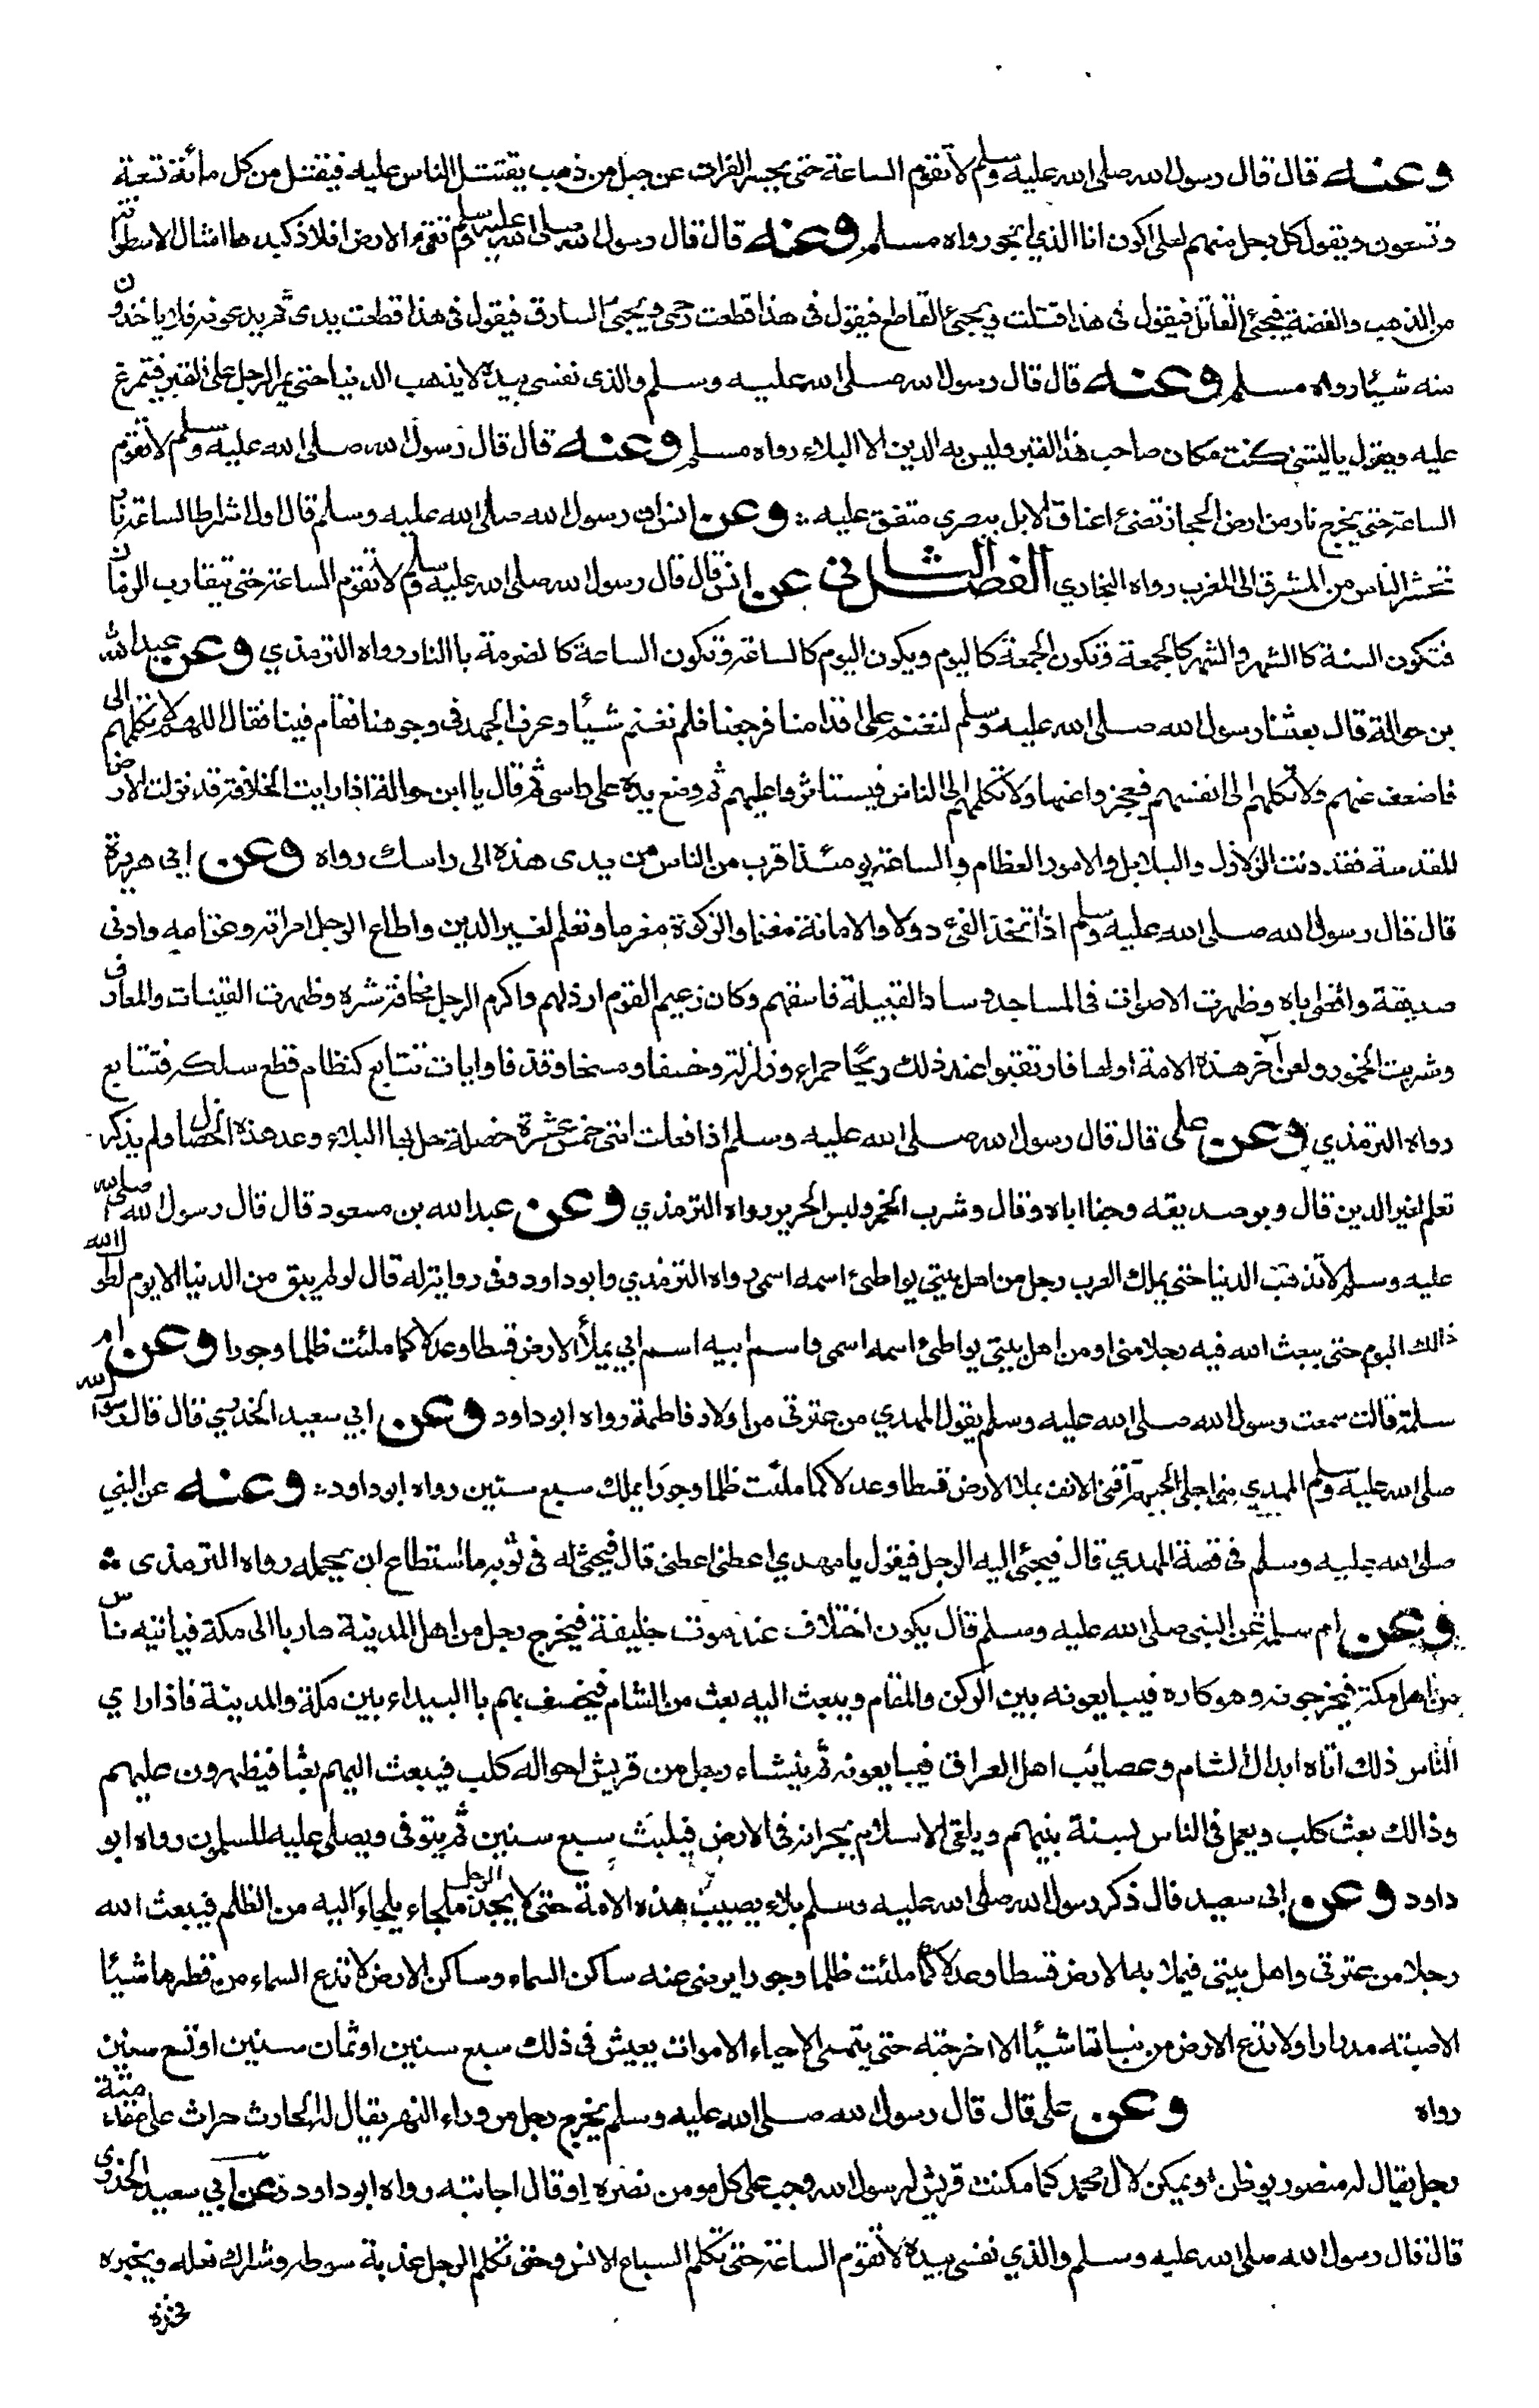 وعنه قال قال رسول الله صلى الله عليه وسلم لا تقوم الساعة حتى يحسر الفرات عن جبل من ذهب يقتتل الناس عليه فيقتل من كل مائة تسعة
وتسعون ويقول كل رجل منهم لعلي اكون انا الذي انجو رواه مسلم وعنه قال قال رسول الله صلى الله عليه وسلم تقئ الارض افلاذ كبدها امثال الاسطوانة
من الذهب والفضة فيجئ القاتل فيقول في هذا قتلت ويجئ القاطع فيقول في هذا قطعت رحمي ويجئ السارق فيقول في هذا قطعت يدى ثم يدعونه فلا ياخذون
منه شيئا رواه مسلم وعنه قال قال رسول الله صلى الله عليه وسلم والذى نفسي بيده لا يذهب الدنيا حتى يمر الرجل على القبر فيتمرغ
عليه ويقول ياليتني كنت مكان صاحب هذا القبر وليس به الدين الا البلاء رواه مسلم وعنه قال قال رسول الله صلى الله عليه وسلم لا تقوم
الساعة حتى يخرج نار من ارض الحجاز تضئ اعناق الابل ببصرى متفق عليه وعن انس ان رسول الله صلى الله عليه وسلم قال اول اشراط الساعة نار
تحشر الناس من المشرق الى المغرب رواه البخاري الفصل الثاني عن انس قال قال رسول الله صلى الله عليه وسلم لا تقوم الساعة حتى يتقارب الزمان
فتكون السنة كا الشهر والشهر كالجمعة وتكون الجمعة كاليوم ويكون اليوم كالساعة وتكون الساعة كا لضرمة باالنار رواه الترمذي وعن عبد الله
بن حوالة قال بعثنا رسول الله صلى الله عليه وسلم لنغنم على اقدامنا فرجعنا فلم نغنم شيئا وعرف الجهد في وجوهنا فقام فينا فقال اللهم لا تكلهم الى
فاضعف عنهم ولا تكلهم الى انفسهم فيعجزوا عنها ولا تكلهم الى الناس فيستاثروا عليهم ثم وضع يده على راسى ثم قال يا ابن حوالة اذا رايت الخلافة قد نزلت الارض
المقدسة فقد دنت الزلازل والبلابل والامور العظام والساعة يومئذ اقرب من الناس من يدى هذه الى راسك رواه وعن ابي هريرة
قال قال رسول الله صلى الله عليه وسلم اذا تخذ الفئ دولا والامانة مغنما والزكوة مغرما وتعلم لغير الدين واطاع الرجل امراته وعق امه وادنى
صديقة واقصى اباه وظهرت الاصوات في المساجد وساد القبيلة فاسقهم وكان زعيم القوم ارذلهم واكرم الرجل مخافة شره وظهرت القينات والمعازف
وشربت الخمور ولعن آخر هذه الامة اولها فارتقبوا عند ذلك ريحا حمراء وزلزلة وخسفا ومسخا وقذفا وايات تتابع كنظام قطع سلكه فتتابع
رواه الترمذي وعن على قال قال رسول الله صلى الله عليه وسلم اذا فعلت امتى خمس عشرة خصلة حل بها البلاء وعد هذه الخصال ولم يذكر
تعلم لغير الدين قال وبر صديقه وجفا اباه وقال وشرب الخمر ولبس الحرير رواه الترمذي وعن عبد الله بن مسعود قال قال رسول الله صلى الله
عليه وسلم لا تذهب الدنيا حتى يملك العرب رجل من اهل بيتي يواطئ اسمه اسمى رواه الترمذي وابو داود وفى رواية له قال لو لم يبق من الدنيا الا يوم لطول الله
ذالك اليوم حتى يبعث الله فيه رجلا منى او من اهل بيتي يواطئ اسمه اسمى واسم ابيه اسم ابي يملأ الارض قسطا وعدلا كما ملئت ظلما وجورا وعن ام
سلمة قالت سمعت رسول الله صلى الله عليه وسلم يقول المهدي من عترتي من اولاد فاطمة رواه ابو داود وعن ابي سعيد الخدري قال قال رسول الله
صلى الله عليه وسلم المهدي مني اجلى الجبهة اقنى الانف يملا الارض قسطا وعدلا كما ملئت ظلما وجورا يملك سبع سنين رواه ابو داود وعنه عن النبي
صلى الله عليه وسلم في قصة المهدي قال فيجئ اليه الرجل فيقول يا مهدي اعطنى اعطنى قال فيحثى له في ثوبه ما استطاع ان يحمله رواه الترمذى
وعن ام سلمة عن النبى صلى الله عليه وسلم قال يكون اختلاف عند موت خليفة فيخرج رجل من اهل المدينة هاربا الى مكة فياتيه ناس
من اهل مكة فيخرجونه وهو كاره فيبايعونه بين الركن والمقام ويبعث اليه بعث من الشام فيخسف بهم باالبيداء بين مكة والمدينة فاذا راي
الناس ذلك اتاه ابدال الشام وعصايب اهل العراق فيبايعونه ثم ينشاء رجل من قريش اخواله كلب فيبعث اليهم بعثا فيظهرون عليهم
وذالك بعث كلب ويعمل في الناس بسنة نبيهم ويلقى الاسلام بجرانه في الارض فيلبث سبع سنين ثم يتوفى ويصلى عليه المسلمون رواه ابو
داود وعن ابى سعيد قال ذكر رسول الله صلى الله عليه وسلم بلاء يصيب هذه الامة حتى لا يجد الرجل ملجاء يلجاء اليه من الظلم فيبعث الله
رجلا من عترتي واهل بيتي فيملا به الارض قسطا وعدلا كما ملئت ظلما وجورا يرضى عنه ساكن السماء وساكن الارض لا تدع السماء من قطرها شيئا
الا صبته مدرارا ولا تدع الارض من نباتها شيئا الا اخرجته حتى يتمنى الاحياء الاموات يعيش في ذلك سبع سنين او ثمان سنين او تسع سنين
رواه وعن على قال قال رسول الله صلى الله عليه وسلم يخرج رجل من وراء النهر يقال له الحارث حراث على مقدمته
رجل يقال له منصور يوطن او يمكن لال محمد كما مكنت قريش لرسول الله وجب على كل مومن نصره او قال اجابته رواه ابو داود وعن ابي سعيد الخدرى
قال قال رسول الله صلى الله عليه وسلم والذي نفسى بيده لا تقوم الساعة حتى تكلم السباع الانس وحتى تكلم الرجل عذبة سوطه وشراك نعله ويخبره
فخذه